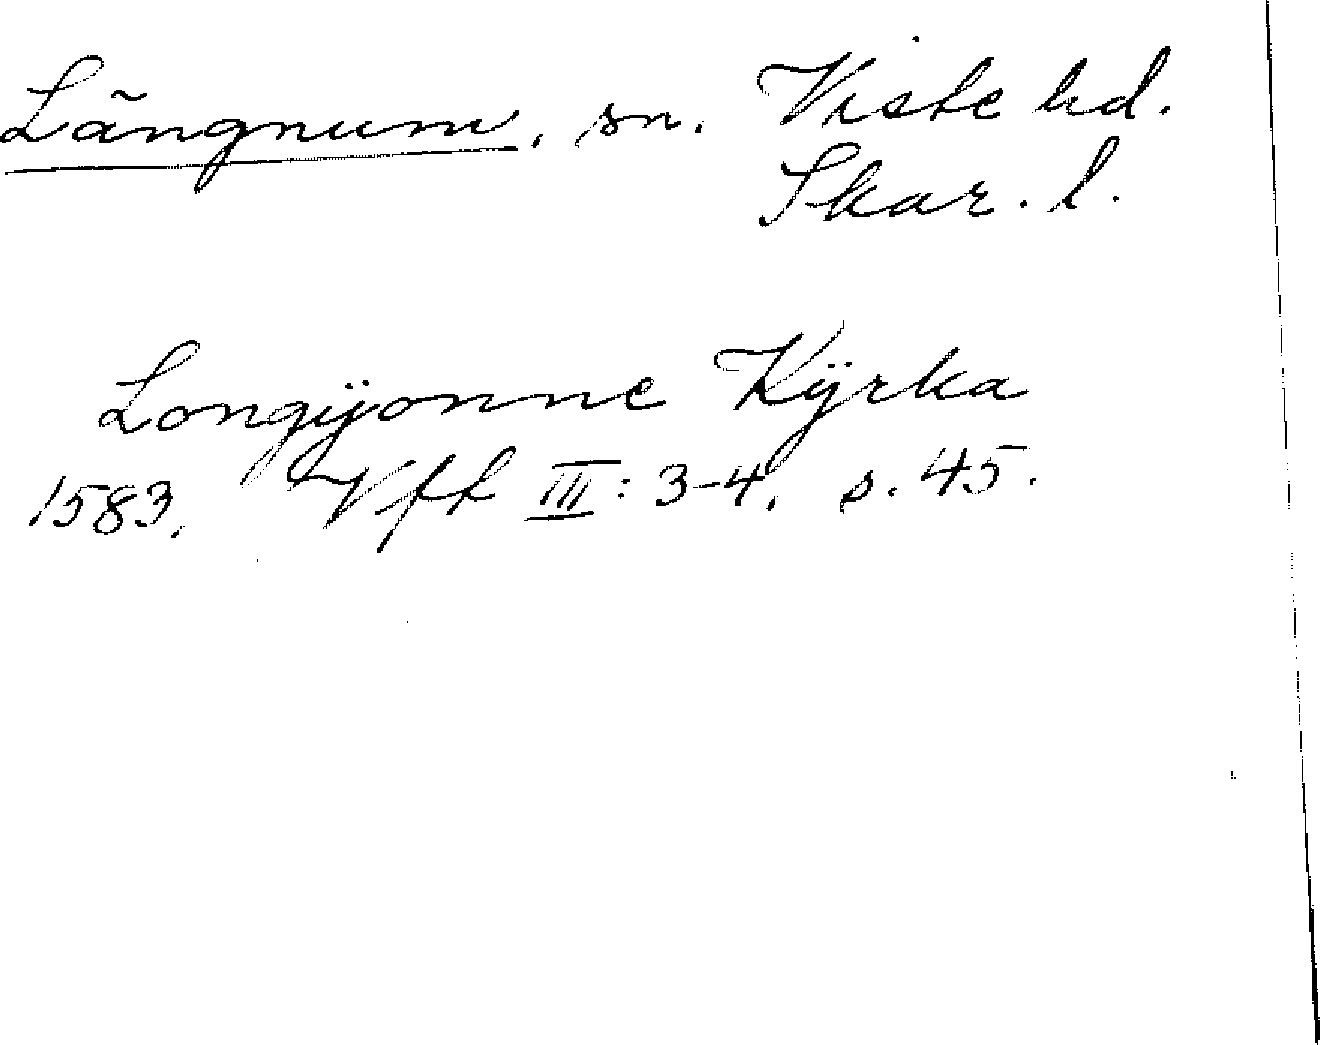 Långnum, sn. Viste hd.
Skar. l.
Longÿonne Kÿrka
1583. Vff III: 3-4, s. 45.